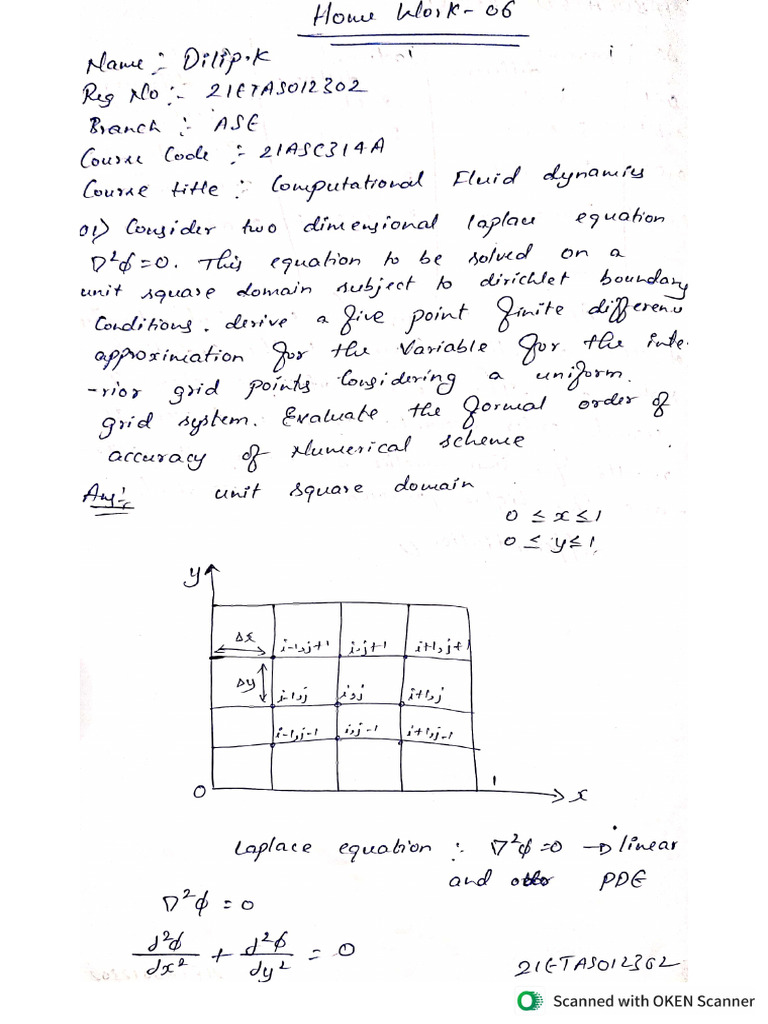 Home Work-06
Name :- Dilip.K
Reg No :- 21ETAS012302
Branch :- ASE
Course Code :- 21ASC314A
Course title :- Computational Fluid dynamics
01) Consider two dimensional laplace equation
∇²ϕ=0. This equation to be solved on a
unit square domain subject to dirichlet boundary
Conditions. derive a five point finite difference
approximation for the Variable for the inte-
-rior grid points Considering a uniform
grid system. Evaluate the formal order of
accuracy of Numerical scheme
Ans:- unit square domain
0 ≤ x ≤ 1
0 ≤ y ≤ 1
y
Δx i-1,j+1 i,j+1 i+1,j+1
Δy i-1,j i,j i+1,j
i-1,j-1 i,j-1 i+1,j-1
0 1 x
Laplace equation : ∇²ϕ=0 → linear
and PDE
∇²ϕ = 0
d²ϕ/dx² + d²ϕ/dy² = 0
21ETAS012302
Scanned with OKEN Scanner